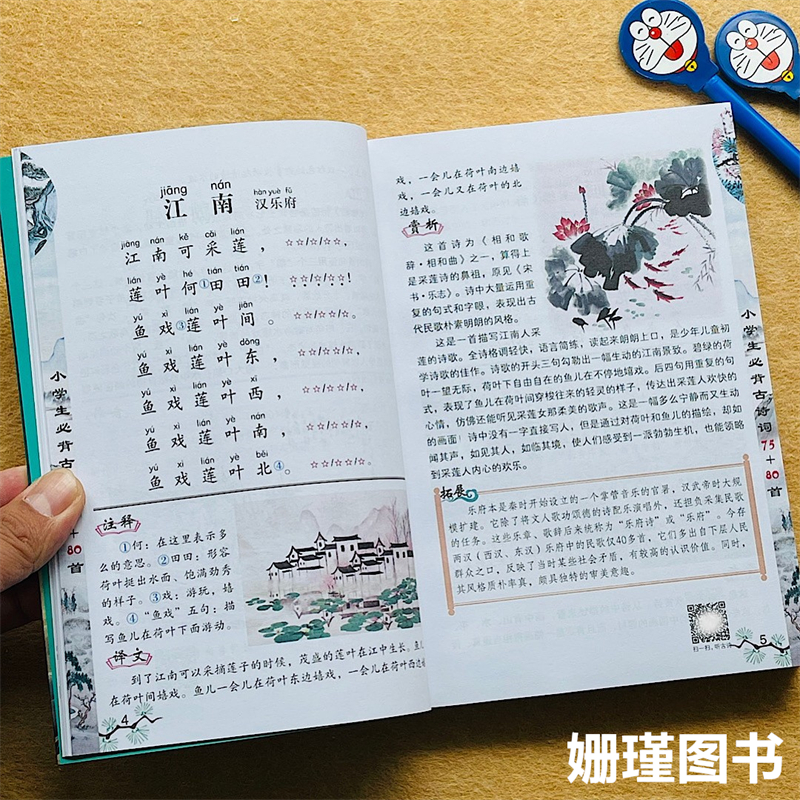 jiāng nán hàn yuè fǔ
江南 汉乐府
jiāng nán kě cǎi lián
江南可采莲，☆☆/☆/☆☆，
lián yè hé tián tián
莲叶何①田田②！☆☆/☆/☆☆！
yú xì lián yè jiān
鱼戏③莲叶间。☆☆/☆☆/☆。
yú xì lián yè dōng
鱼戏莲叶东，☆☆/☆☆/☆，
yú xì lián yè xī
鱼戏莲叶西，☆☆/☆☆/☆，
yú xì lián yè nán
鱼戏莲叶南，☆☆/☆☆/☆，
yú xì lián yè běi
鱼戏莲叶北④。☆☆/☆☆/☆。
注释
①何：在这里表示多
么的意思。②田田：形容
荷叶挺出水面、饱满劲秀
的样子。③戏：游玩，嬉
戏。④“鱼戏”五句：描
写鱼儿在荷叶下面游动。
译文
到了江南可以采摘莲子的时候，茂盛的莲叶在江中生长。鱼儿
在荷叶间嬉戏。鱼儿一会儿在荷叶东边嬉戏，一会儿在荷叶西边嬉
4
小学生必背古
+
80
首
戏，一会儿在荷叶南边嬉
戏，一会儿又在荷叶的北
边嬉戏。
赏析
这首诗为《相和歌
辞·相和曲》之一，算得上
是采莲诗的鼻祖，原见《宋
书·乐志》。诗中大量运用重
复的句式和字眼，表现出古
代民歌朴素明朗的风格。
这是一首描写江南人采
莲的诗歌。全诗格调轻快，语言简练，读起来朗朗上口，是少年儿童初
学诗歌的佳作。诗歌的开头三句勾勒出一幅生动的江南景致。碧绿的荷
叶一望无际，荷叶下自由自在的鱼儿在不停地嬉戏。后四句用重复的句
式，表现了鱼儿在荷叶间穿梭往来的轻灵的样子，传达出采莲人欢快的
心情，仿佛还能听见采莲女那柔美的歌声。这是一幅多么宁静而又生动
的画面！诗中没有一字直接写人，但是通过对荷叶和鱼儿的描绘，却如
闻其声，如见其人，如临其境，使人们感受到一派勃勃生机，也能领略
到采莲人内心的欢乐。
拓展
乐府本是秦时开始设立的一个掌管音乐的官署，汉武帝时大规
模扩建。它除了将文人歌功颂德的诗配乐演唱外，还担负采集民歌
的任务。这些乐章、歌辞后来统称为“乐府诗”或“乐府”。今存
两汉（西汉、东汉）乐府中的民歌仅40多首，它们多出自下层人民
群众之口，反映了当时某些社会矛盾，有较高的认识价值。同时，
其风格质朴率真，颇具独特的审美意趣。
扫一扫，听古诗
5
小学生必背古诗词
75
+
80
首
姗瑾图书